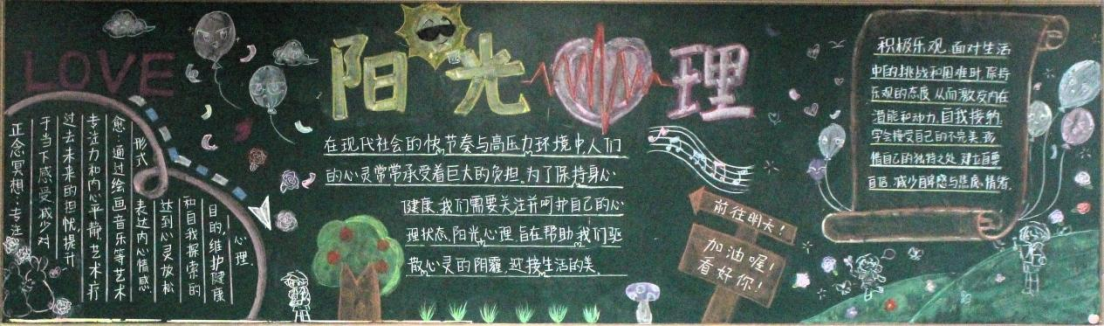 LOVE
阳光心理
正念冥想:专注
于当下感受减少对
过去未来的担忧提升
专注力和内心平静.艺术疗
愈:通过绘画音乐等艺术
形式表达内心情感
达到心灵放松
和自我探索的
目的.维护健康
心理.
在现代社会的快节奏与高压力环境中,人们
的心灵常常承受着巨大的负担.为了保持身心
健康,我们需要关注并呵护自己的心
理状态.阳光心理,旨在帮助我们驱
散心灵的阴霾,迎接生活的美.
前往明天!
加油喔!
看好你!
积极乐观,面对生活
中的挑战和困难时,保持
乐观的态度,从而激发内在
潜能和动力.自我接纳,
学会接受自己的不完美,珍
惜自己的独特之处,建立自尊
自信,减少自卑感与焦虑情绪.